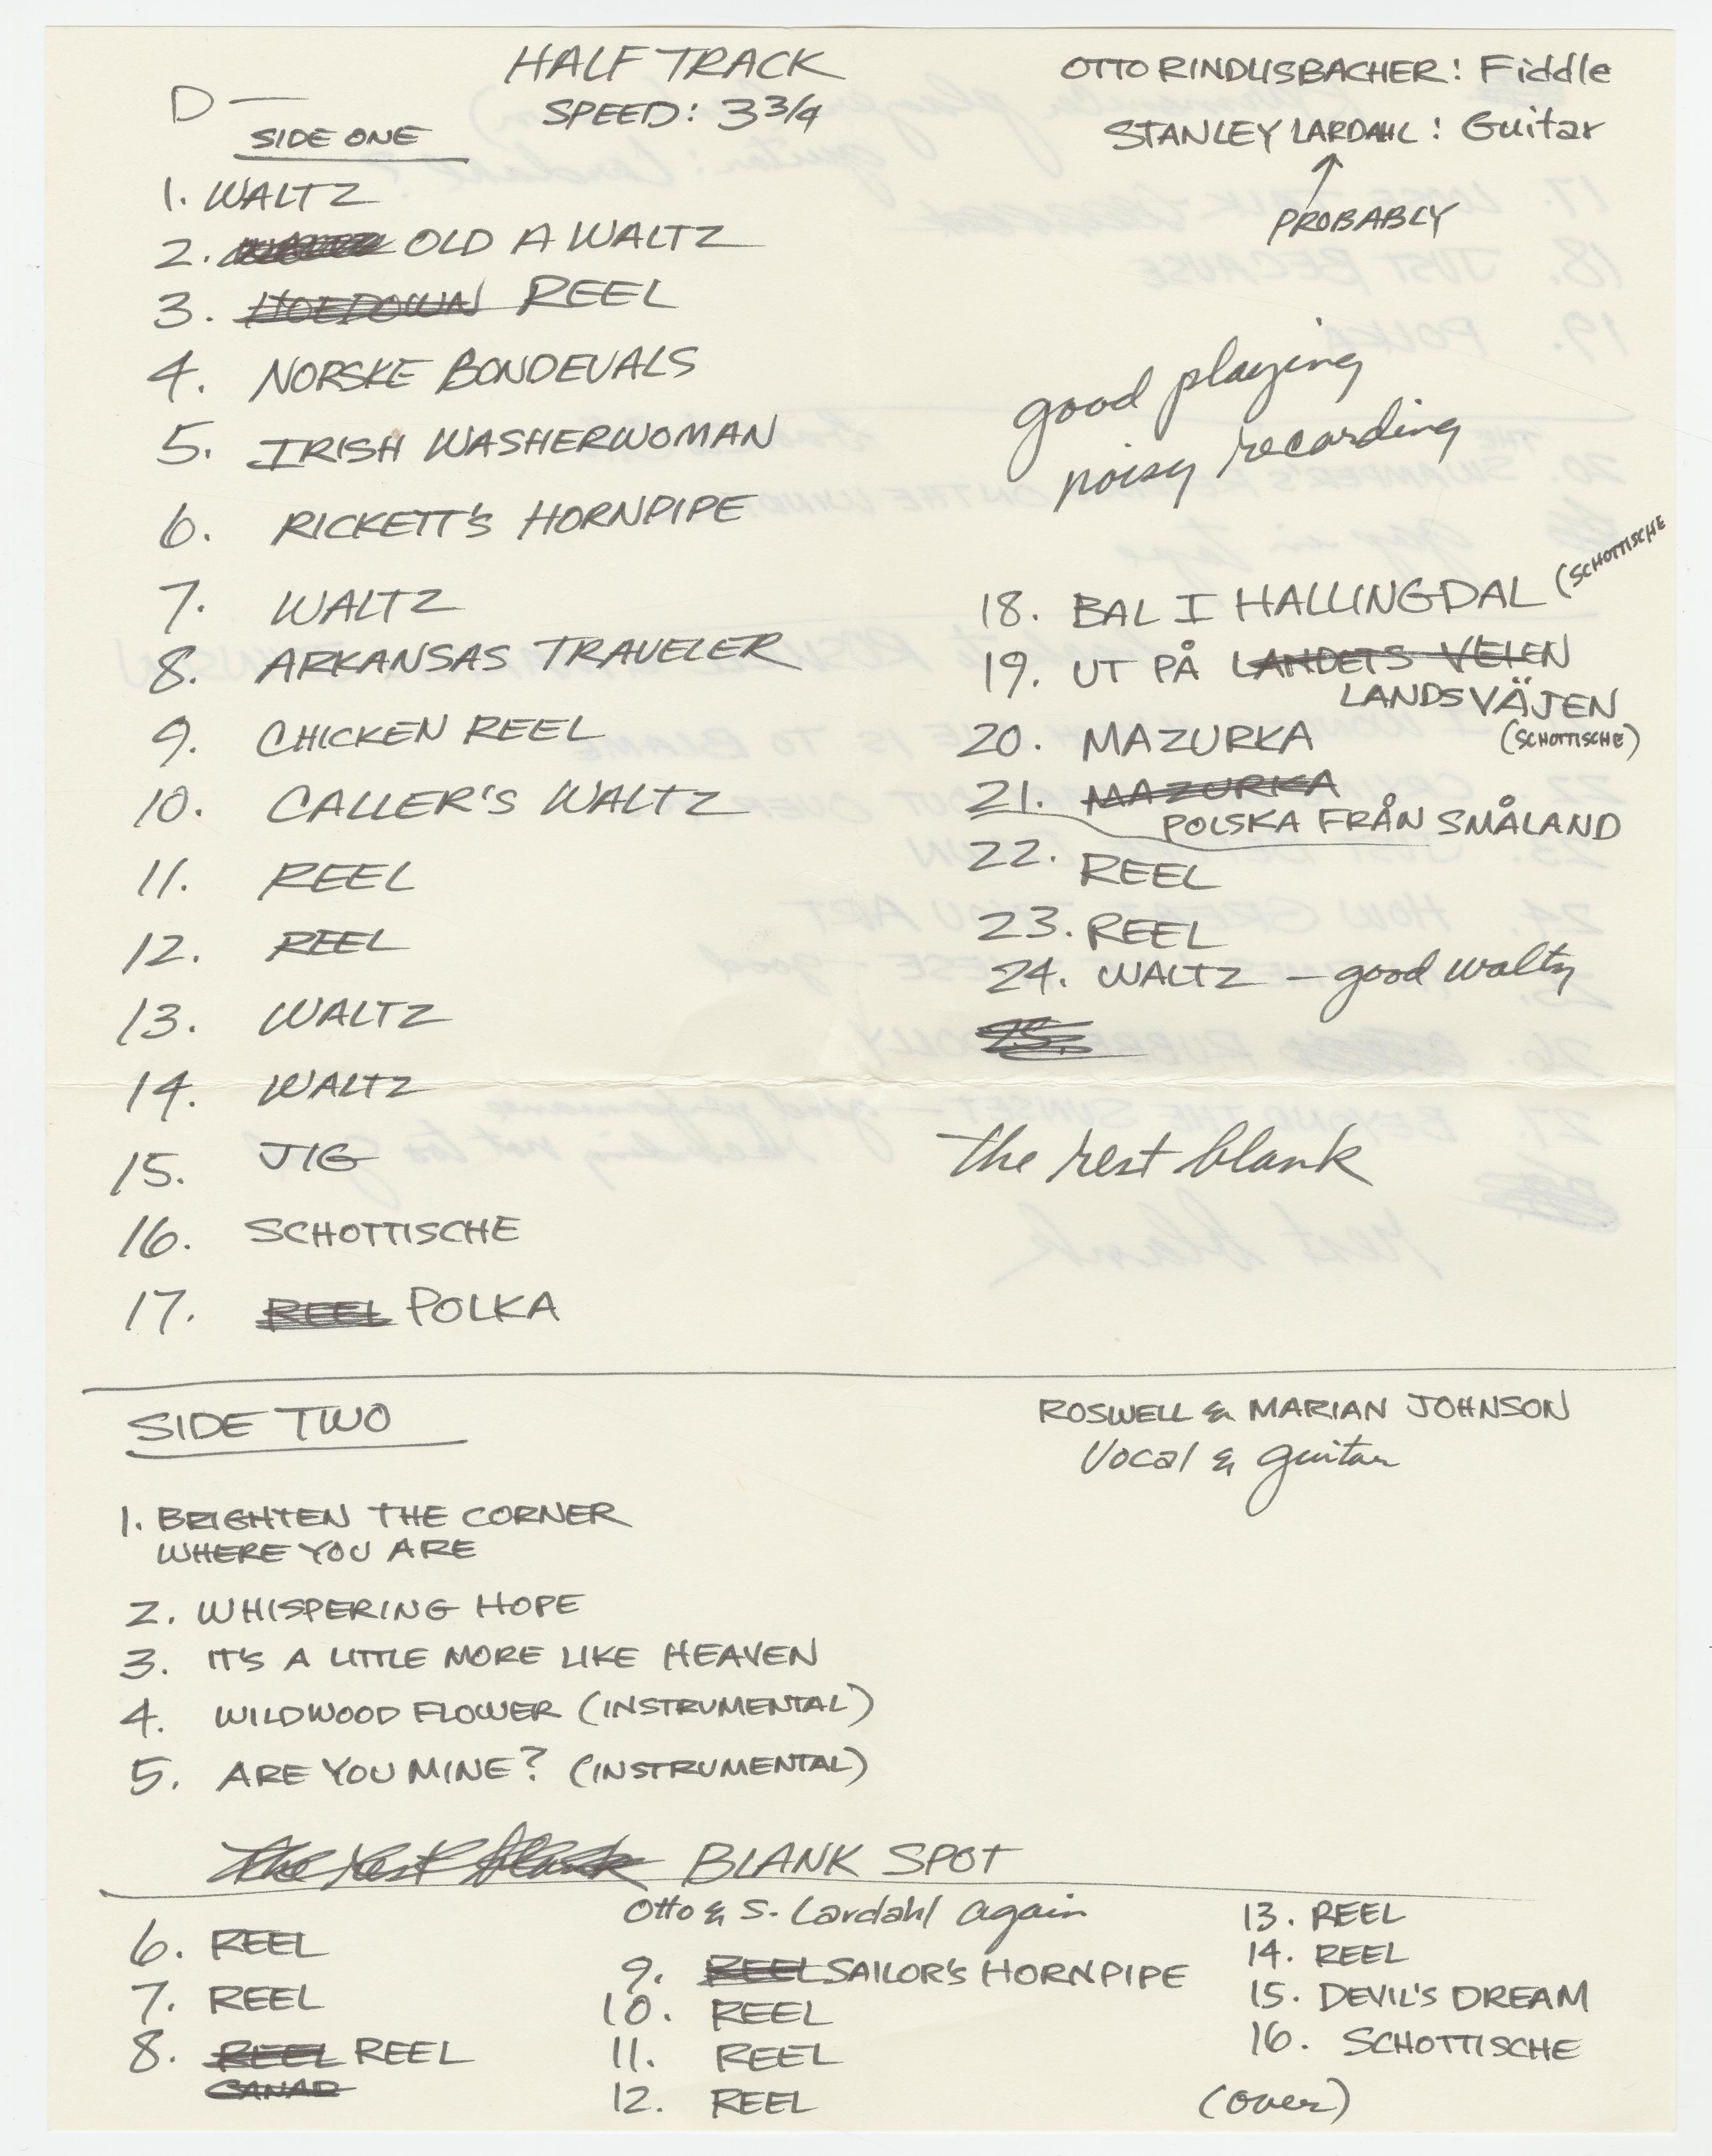 D—
HALF TRACK
SPEED: 3 3/4
OTTO RINDLISBACHER: Fiddle
STANLEY LARDAHL: Guitar
PROBABLY
SIDE ONE
1. WALTZ
2. OLD A WALTZ
3. HOEDOWN REEL
4. NORSKE BONDEVALS
5. IRISH WASHERWOMAN
6. RICKETT'S HORNPIPE
7. WALTZ
8. ARKANSAS TRAVELER
9. CHICKEN REEL
10. CALLER'S WALTZ
11. REEL
12. REEL
13. WALTZ
14. WALTZ
15. JIG
16. SCHOTTISCHE
17. REEL POLKA
good playing
noisy recording
18. BAL I HALLINGDAL (SCHOTTISCHE
19. UT PÅ LANDETS VEIEN
LANDSVÄJEN
(SCHOTTISCHE)
20. MAZURKA
21. MAZURKA
POLSKA FRÅN SMÅLAND
22. REEL
23. REEL
24. WALTZ – good waltz
25.
the rest blank
SIDE TWO
ROSWELL & MARIAN JOHNSON
Vocal & guitar
1. BRIGHTEN THE CORNER
WHERE YOU ARE
2. WHISPERING HOPE
3. IT'S A LITTLE MORE LIKE HEAVEN
4. WILDWOOD FLOWER (INSTRUMENTAL)
5. ARE YOU MINE? (INSTRUMENTAL)
The rest blank BLANK SPOT
Otto & S. Lardahl again
6. REEL
7. REEL
8. REEL REEL
CANAD
9. REEL SAILOR'S HORNPIPE
10. REEL
11. REEL
12. REEL
13. REEL
14. REEL
15. DEVIL'S DREAM
16. SCHOTTISCHE
(over)